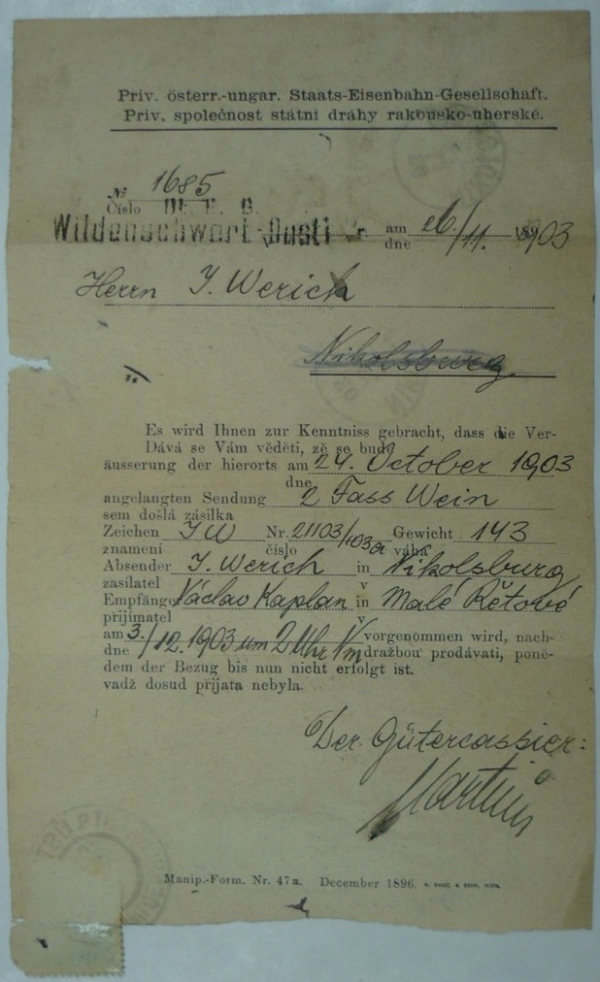 Priv. österr.-ungar. Staats-Eisenbahn-Gesellschaft.
Priv. společnost státní dráhy rakousko-uherské.
№ 1685
Číslo
Wildenschwert-Ousti am 26/11. 1903
dne
Herrn J. Werich
Nikolsburg
Es wird Ihnen zur Kenntniss gebracht, dass die Ver-
Dává se Vám věděti, že se bude
äusserung der hierorts am 24. October 1903
dne
angelangten Sendung 2 Fass Wein
sem došlá zásilka
Zeichen JW Nr. 21103/ Gewicht 143
znamení číslo váha
Absender J. Werich in Nikolsburg
zasílatel v
Empfänger Václav Kaplan in Malé Řetové
přijímatel v
am 3./12. 1903 um 2 Uhr Nm vorgenommen wird, nach-
dne dražbou prodávati, pone-
dem der Bezug bis nun nicht erfolgt ist.
vadž dosud přijata nebyla.
Der Gütercassier:
Manip.-Form. Nr. 47a. December 1896.